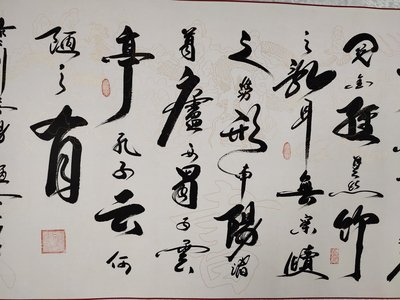 閱金經無絲竹
之亂耳無案牘
之勞形南陽諸
葛廬西蜀子雲
亭孔子云何
陋之有